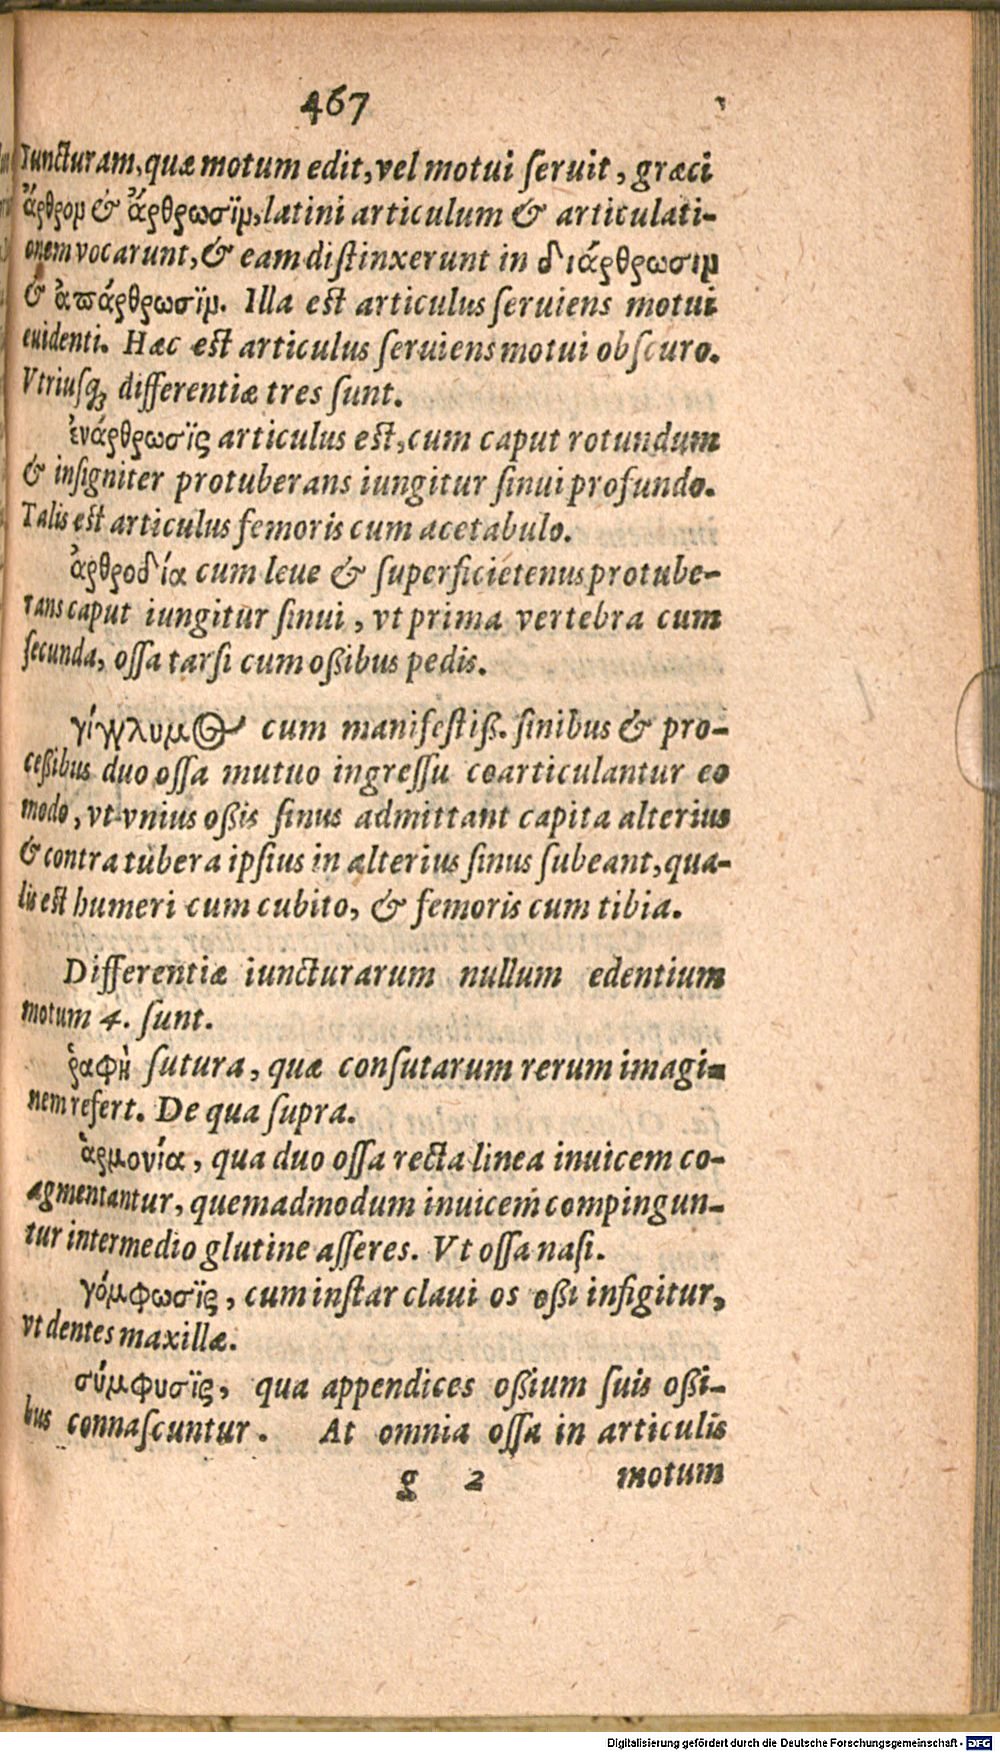 467
Iuncturam, quæ motum edit, vel motui ſeruit, græci
ἄρθρομ & ἄρθρωσϊμ, latini articulum & articulati-
onem vocarunt, & eam diſtinxerunt in διάρθρωσιμ
& ἀπάρθρωσϊμ. Illa eſt articulus ſeruiens motui
euidenti. Hæc eſt articulus ſeruiens motui obſcuro.
Vtriuſq́ꝫ differentiæ tres ſunt.
ἐνάρθρωσϊς articulus eſt, cum caput rotundum
& inſigniter protuberans iungitur ſinui profundo.
Talis eſt articulus femoris cum acetabulo.
ἀρθροδία cum leue & ſuperficietenus protube-
rans caput iungitur ſinui, vt prima vertebra cum
ſecunda, oſſa tarſi cum oßibus pedis.
γίγγλυμος cum manifeſtiß. ſinibus & pro-
ceßibus duo oſſa mutuo ingreſſu coarticulantur eo
modo, vt vnius oßis ſinus admittant capita alterius
& contra tubera ipſius in alterius ſinus ſubeant, qua-
lis eſt humeri cum cubito, & femoris cum tibia.
Differentiæ iuncturarum nullum edentium
motum 4. ſunt.
ῥαφὴ ſutura, quæ conſutarum rerum imagi-
nem refert. De qua ſupra.
ἁρμονία, qua duo oſſa recta linea inuicem co-
agmentantur, quemadmodum inuicem compingun-
tur intermedio glutine aſſeres. Vt oſſa naſi.
γόμφωσϊς, cum inſtar claui os oßi infigitur,
vt dentes maxillæ.
σύμφυσϊς, qua appendices oßium ſuis oßi-
bus connaſcuntur. At omnia oſſa in articulis
g 2 motum
Digitalisierung gefördert durch die Deutsche Forschungsgemeinschaft - DFG